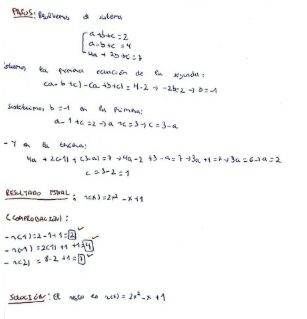 PASOS: Resolvemos el sistema
a+b+c=2
a-b+c=4
4a+2b+c=7
la primera ecuación de la segunda:
(a-b+c)-(a+b+c)=4-2 → -2b=2 → b=-1
sustituimos b=-1 en la primera:
a-1+c=2 → a+c=3 → c=3-a
- Y en la tercera:
4a+2(-1)+(3-a)=7 → 4a-2+3-a=7 → 3a+1=7 → 3a=6 → a=2
c=3-2=1
RESULTADO FINAL: r(x)=2x²-x+1
(COMPROBACIÓN):
- r(1)=2-1+1=2 ✓
- r(-1)=2(1)+1+1=4 ✓
- r(2)=8-2+1=7 ✓
SOLUCIÓN: El resto es r(x)=2x²-x+1